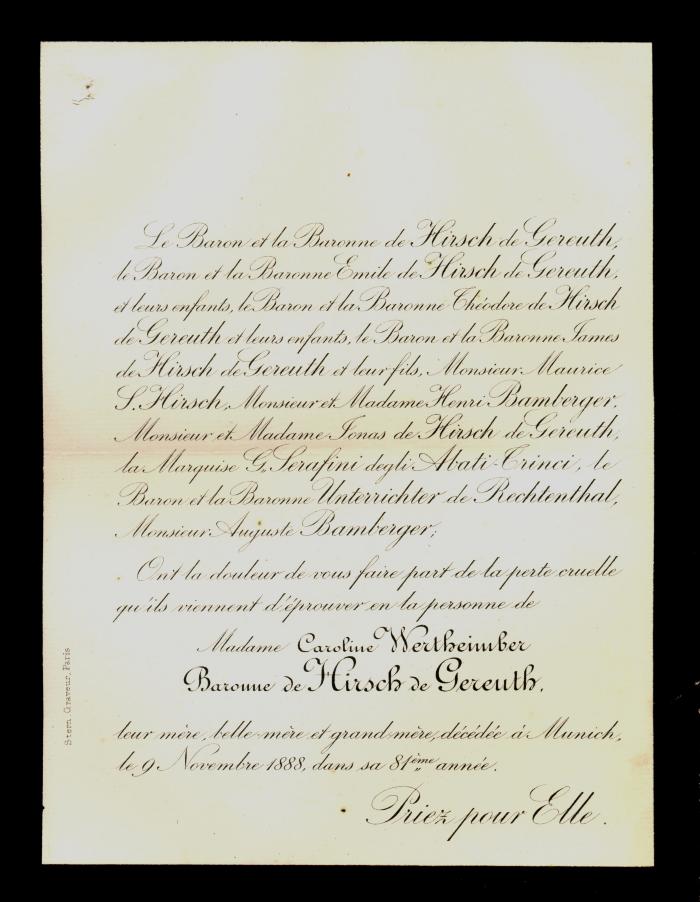 Le Baron et la Baronne de Hirsch de Gereuth,
le Baron et la Baronne Emile de Hirsch de Gereuth,
et leurs enfants, le Baron et la Baronne Théodore de Hirsch
de Gereuth et leurs enfants, le Baron et la Baronne James
de Hirsch de Gereuth et leur fils, Monsieur Maurice
S. Hirsch, Monsieur et Madame Henri Bamberger,
Monsieur et Madame Jonas de Hirsch de Gereuth,
la Marquise G. Serafini degli Abati-Trinci, le
Baron et la Baronne Unterrichter de Rechtenthal,
Monsieur Auguste Bamberger;
Ont la douleur de vous faire part de la perte cruelle
qu'ils viennent d'éprouver en la personne de
Madame Caroline Wertheimber
Baronne de Hirsch de Gereuth,
leur mère, belle-mère et grand'mère, décédée à Munich,
le 9 Novembre 1888, dans sa 81ème année.
Priez pour Elle.
Stern Graveur, Paris